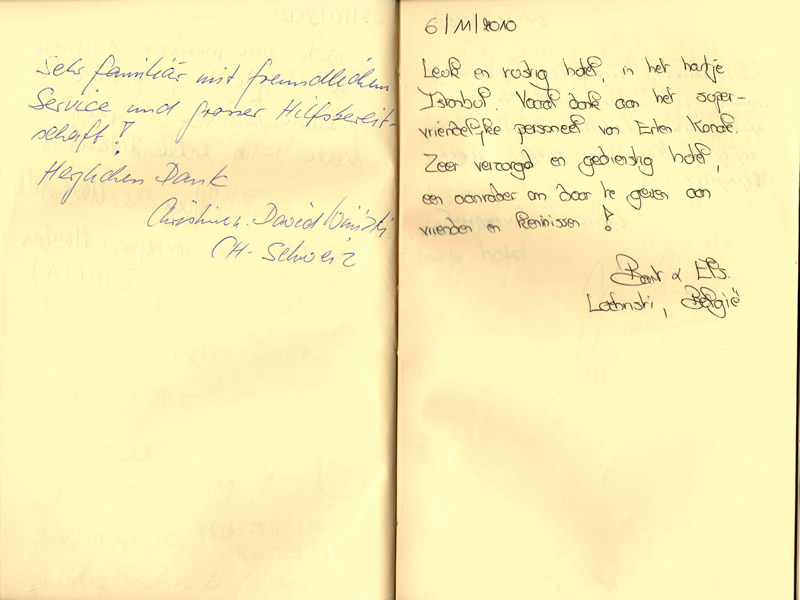 Sehr familiär mit freundlichem
Service und grosser Hilfsbereit-
schaft!
Herzlichen Dank
Christine u. David
CH-Schweiz
6/11/2010
Leuk en rustig hotel, in het hartje
Istanbul. Vooral dank aan het super-
vriendelijke personeel van Erten Konak.
Zeer verzorgd en gedienstig hotel,
een aanrader om door te geven aan
vrienden en kennissen!
Bart & Els.
België